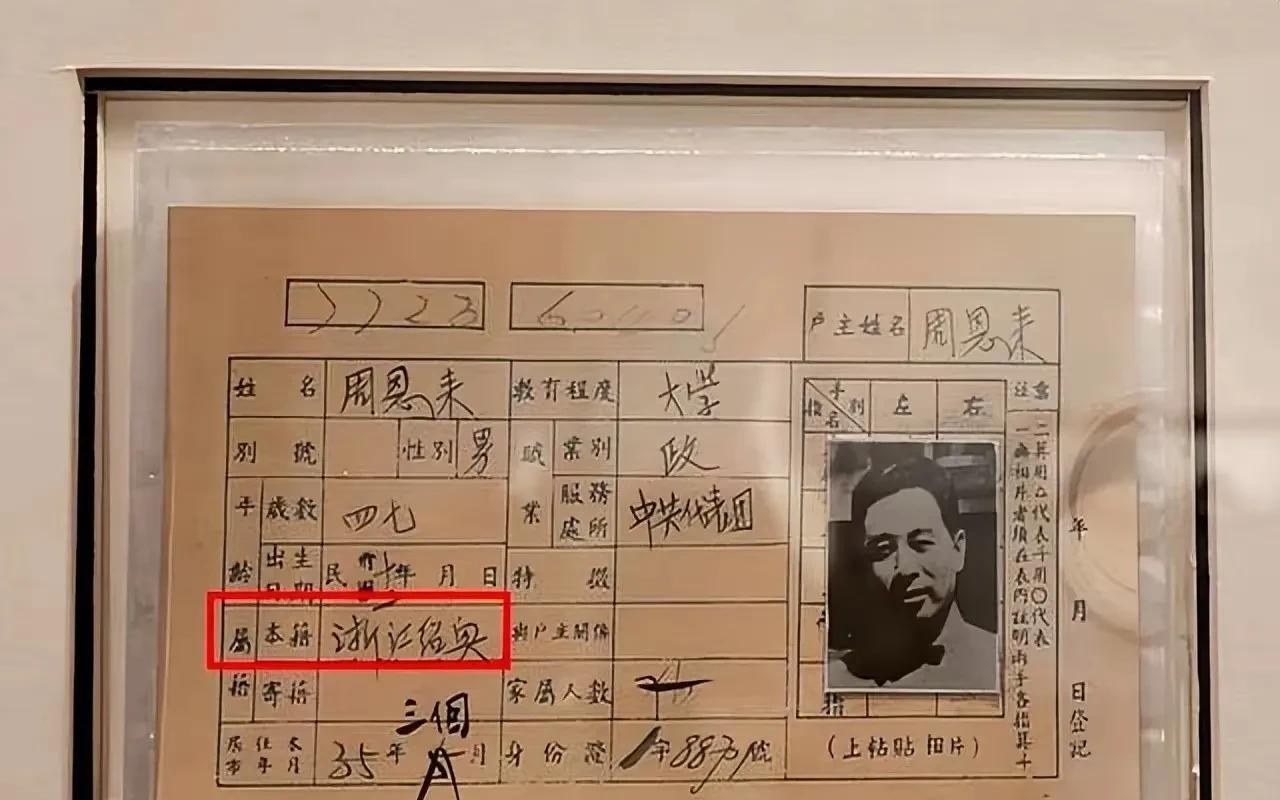 户主姓名 周恩来
姓名 周恩来 教育程度 大学
別號 性別 男 職業 業別 政
年齡 歲數 四七 服務處所 中共代表团
出生日期 民 年 月 日 特徵
属籍 本籍 浙江绍兴 與户主關係
寄籍 家屬人數
三個
居住本市年月 35年 月 身份證 字 號
手別 指名 左 右
指
(上钻贴相片)
注意
一 無相片者須在表內註明兩手各指箕斗
二 箕用△代表斗用〇代表
年 月 日登記